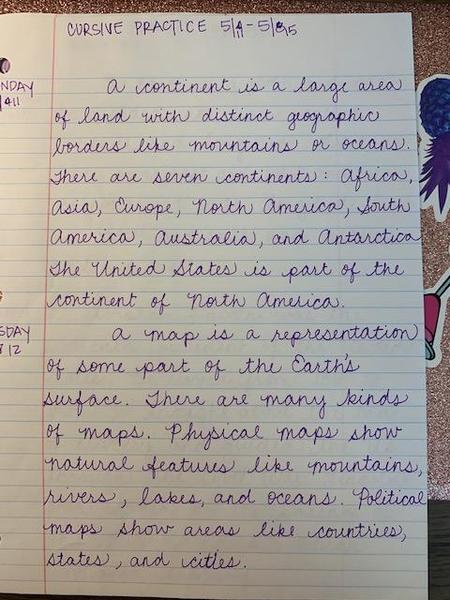 CURSIVE PRACTICE 5/11 - 5/15
NDAY
/11
A continent is a large area
of land with distinct geographic
borders like mountains or oceans.
There are seven continents: Africa,
Asia, Europe, North America, South
America, Australia, and Antarctica
The United States is part of the
continent of North America.
SDAY
12
A map is a representation
of some part of the Earth's
surface. There are many kinds
of maps. Physical maps show
natural features like mountains,
rivers, lakes, and oceans. Political
maps show areas like countries,
states, and cities.